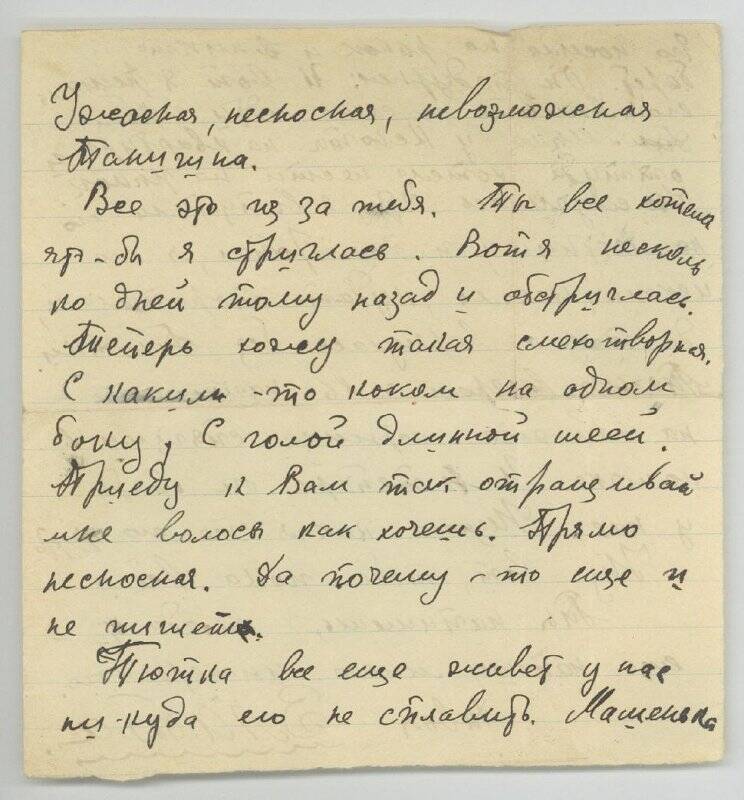 Ужасная, несносная, невозможная
Танигина.
Все это из за тебя. Ты все хотела
что-бы я стриглась. Вот я несколь
ко дней тому назад и обстриглась.
Теперь хожу такая смехотворная.
С каким-то коком на одном
боку, С голой длинной шеей.
Приеду к Вам так отращивай
мне волосы как хочешь. Прямо
несносная. Да почему-то еще и
не пишет.
Тютка все еще живет у нас
ни-куда его не сплавить. Машенька